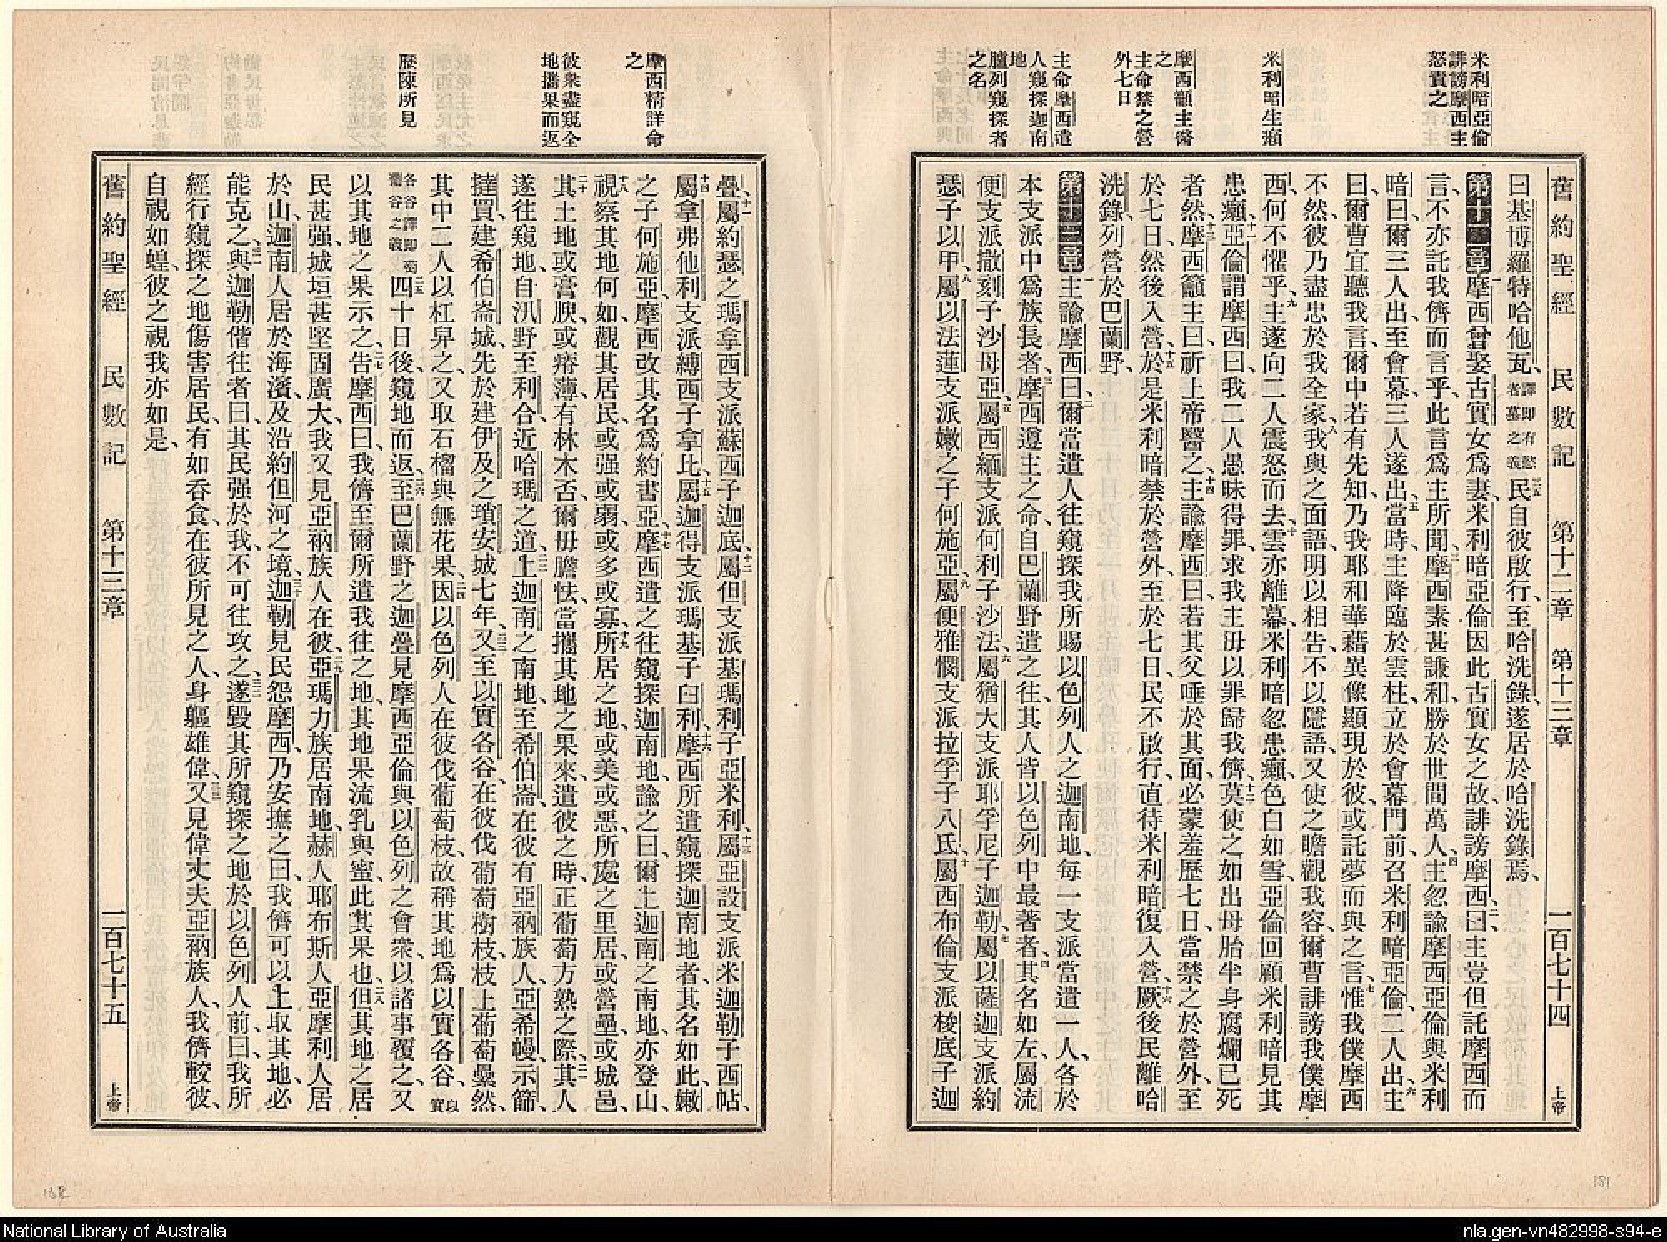 舊約聖經 民數記 第十二章 第十三章 一百七十四 上帝
米利暗亞倫
誹謗摩西主
怒責之
米利暗生癩
摩西籲主醫
之
主命禁之營
外七日
主命摩西遣
人窺探迦南
地
臚列窺探者
之名
曰基博羅特哈他瓦、譯即有慾者墓之義三五民自彼啟行、至哈洗錄、遂居於哈洗錄焉、
第十二章一摩西曾娶古實女爲妻、米利暗亞倫因此古實女之故、誹謗摩西曰、二主豈但託摩西而
言、不亦託我儕而言乎、此言爲主所聞、三摩西素甚謙和、勝於世間萬人、四主忽諭摩西亞倫與米利
暗曰、爾三人出至會幕、三人遂出、五當時主降臨於雲柱、立於會幕門前、召米利暗亞倫、二人出、六主
曰、爾曹宜聽我言、爾中若有先知、乃我耶和華藉異像顯現於彼、或託夢而與之言、七惟我僕摩西
不然、彼乃盡忠於我全家、八我與之面語、明以相告、不以隱語、又使之瞻觀我容、爾曹誹謗我僕摩
西、何不懼乎、九主遂向二人震怒而去、十雲亦離幕、米利暗忽患癩、色白如雪、亞倫回顧米利暗、見其
患癩、十一亞倫謂摩西曰、我二人愚昧得罪、求我主毋以罪歸我儕、十二莫使之如出母胎半身腐爛已死
者然、十三摩西籲主曰、祈上帝醫之、十四主諭摩西曰、若其父唾於其面、必蒙羞歷七日、當禁之於營外、至
於七日、然後入營、十五於是米利暗禁於營外、至於七日、民不啟行、直待米利暗復入營、十六厥後民離哈
洗錄、列營於巴蘭野、
第十三章一主諭摩西曰、二爾當遣人往窺探我所賜以色列人之迦南地、每一支派當遣一人、各於
本支派中爲族長者、三摩西遵主之命、自巴蘭野遣之往、其人皆以色列中最著者、四其名如左、屬流
便支派、撒刻子沙母亞、五屬西緬支派、何利子沙法、六屬猶大支派、耶孚尼子迦勒、七屬以薩迦支派、約
瑟子以甲、八屬以法蓮支派、嫩之子何施亞、九屬便雅憫支派、拉孚子八氐、十屬西布倫支派、梭底子迦
摩西精詳命
之
彼衆盡窺全
地攜果而返
歷陳所見
疊、十一屬約瑟之瑪拿西支派、蘇西子迦底、十二屬但支派、基瑪利子亞米利、十三屬亞設支派、米迦勒子西帖、
十四屬拿弗他利支派、縛西子拿比、十五屬迦得支派、瑪基子臼利、十六摩西所遣窺探迦南地者、其名如此、嫩
之子何施亞、摩西改其名爲約書亞、十七摩西遣之往窺探迦南地、諭之曰、爾由迦南之南地、亦登山、
十八視察其地何如、觀其居民或强或弱、或多或寡、十九所居之地、或美或惡、所處之里居、或營壘、或城邑、
二十其土地或膏腴、或瘠薄、有林木否、爾毋膽怯、當攜其地之果來、遣彼之時、正葡萄方熟之際、二一其人
遂往窺地、自汛野至利合、近哈瑪之道、二二上迦南之南地、至希伯崙、在彼有亞衲族人、亞希幔、示篩、
撻買、建希伯崙城、先於建伊及之瑣安城七年、二三又至以實各谷、在彼伐葡萄樹枝、枝上葡萄纍然
其中、二人以杠舁之、又取石榴與無花果、二四因以色列人在彼伐葡萄枝、故稱其地爲以實各谷、以實
各谷譯即葡萄谷之義二五四十日後、窺地而返、二六至巴蘭野之迦疊、見摩西亞倫與以色列之會衆、以諸事覆之、又
以其地之果示之、二七告摩西曰、我儕至爾所遣我往之地、其地果流乳與蜜、此其果也、二八但其地之居
民甚强、城垣甚堅固廣大、我又見亞衲族人在彼、二九亞瑪力族居南地、赫人耶布斯人亞摩利人居
於山、迦南人居於海濱、及沿約但河之境、三十迦勒見民怨摩西、乃安撫之曰、我儕可以上取其地、必
能克之、三一與迦勒偕往者曰、其民强於我、不可往攻之、三二遂毀其所窺探之地於以色列人前、曰、我所
經行窺探之地、傷害居民、有如吞食、在彼所見之人、身軀雄偉、三三又見偉丈夫亞衲族人、我儕較彼、
自視如蝗、彼之視我亦如是、
舊約聖經 民數記 第十三章 一百七十五 上帝
168
181
National Library of Australia
nla.gen-vn482998-s94-e